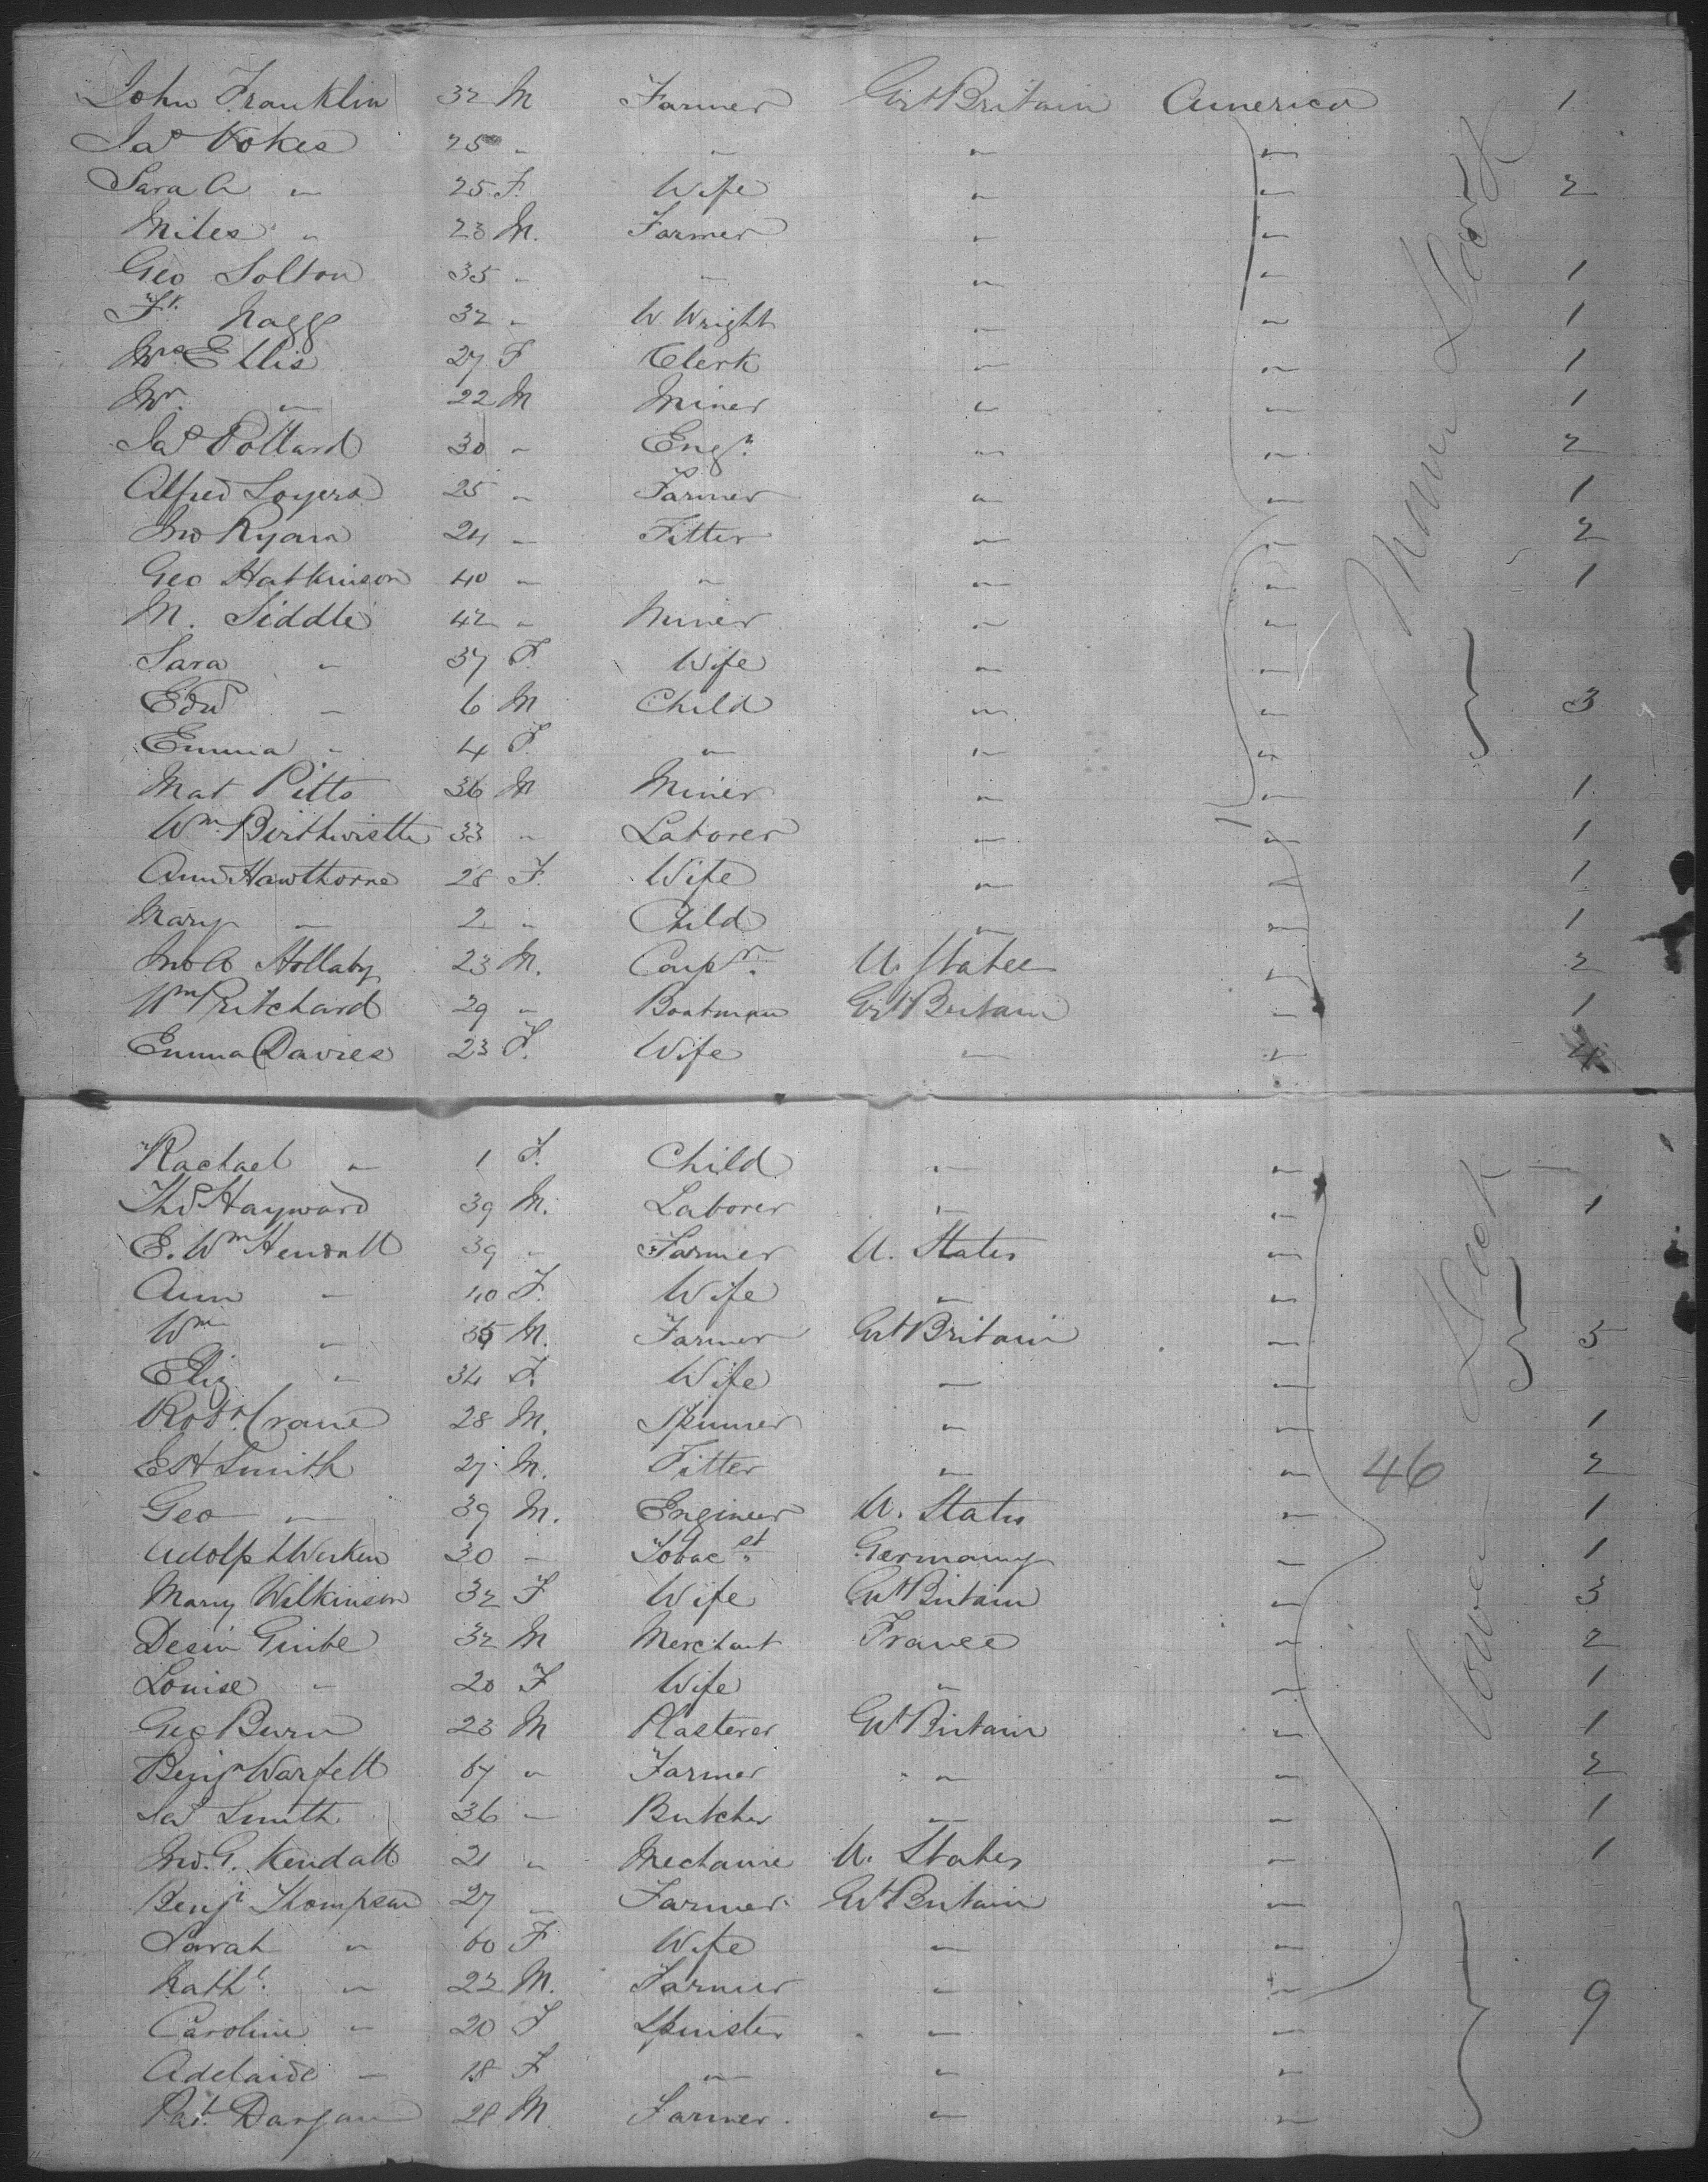 John Franklin 32 M Farmer Grt Britain America 1
Jas Vokes 25 " " " "
Sara A " 25 F. Wife " " 2
Miles " 23 M. Farmer " "
Geo Solton 35 " " " " 1
Fk. Nagge 32 " W. Wright " " 1
Mrs Ellis 27 F Clerk " " 1
Mr. " 22 M Miner " " 1
Jas Pollard 30 " Engr. " " 2
Alfred Soyers 25 " Farmer " " 1
Jno Ryan 24 " Fitter " " 2
Geo Hatkinson 40 " " " " 1
M. Siddle 42 " Miner " "
Sara " 37 F. Wife " "
Edwd " 6 M Child " " 3
Emma " 4 F. " " "
Mat Pitts 36 M Miner " " 1
Wm. Birthwistle 33 " Laborer " " 1
Ann Hawthorne 28 F. Wife " " 1
Mary " 2 " Child " " 1
Jno A Hollaby 23 M. Carpr. U. States " 2
Wm Pritchard 29 " Boatman Grt Britain " 1
Emma Davies 23 F. Wife " " 4
Rachael " 1 F. Child " "
Thos Hayward 39 M. Laborer " " 1
E. Wm Hendall 39 " Farmer U. States "
Ann " 40 F. Wife " "
Wm " 35 M. Farmer Grt Britain " 5
Eliz " 34 F. Wife " "
Robt. Crane 28 M. Spinner " " 1
E H Smith 27 M. Fitter " " 46 2
Geo " 39 M. Engineer U. States " 1
Adolph Werken 30 " Tobacst. Germany " 1
Mary Wilkinson 32 F Wife Grt Britain " 3
Desin Ginbe 32 M Merchant France " 2
Louise " 20 F Wife " " 1
Geo Burn 23 M Plasterer Grt Britain " 1
Benjn Warfell 67 " Farmer " " 2
Jas Smith 36 " Butcher " " 1
Jno. G. Kendall 21 " Mechanic U. States " 1
Benjn Thompson 27 " Farmer Grt Britain "
Sarah " 60 F Wife " "
Nathl. " 22 M. Farmer " " 9
Caroline " 20 F Spinster " "
Adelaide " 18 F " " "
Pat. Dargan 28 M Farmer " "
Main Deck
Lower Deck